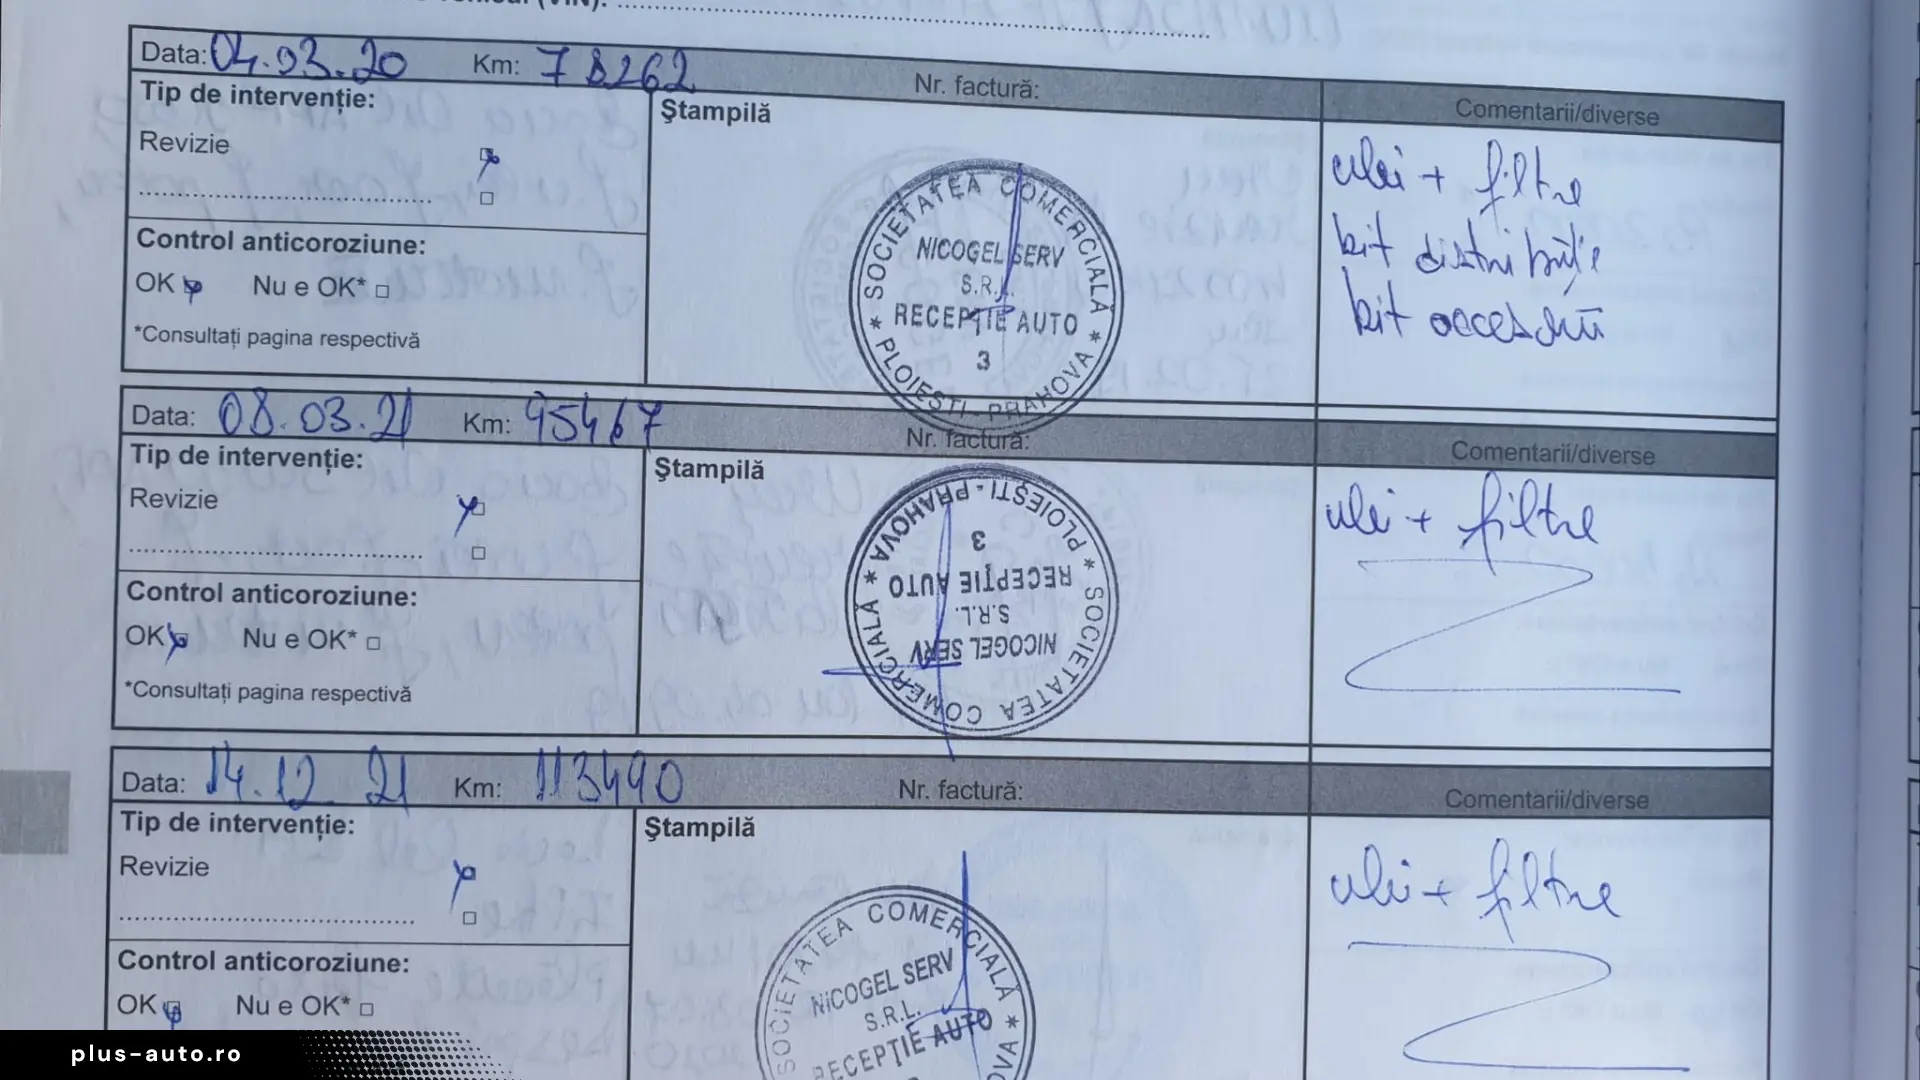 (VIN):
Data: 04.03.20 Km: 78262 Nr. factură: Comentarii/diverse
Tip de intervenție: Ștampilă
Revizie
ulei + filtre
kit distribuție
kit accesorii
SOCIETATEA COMERCIALĂ
NICOGEL SERV
S.R.L.
RECEPȚIE AUTO
3
* PLOIEȘTI - PRAHOVA *
Control anticoroziune:
OK Nu e OK*
*Consultați pagina respectivă
Data: 08.03.21 Km: 95467 Nr. factură: Comentarii/diverse
Tip de intervenție: Ștampilă
Revizie
ulei + filtre
SOCIETATEA COMERCIALĂ
NICOGEL SERV
S.R.L.
RECEPȚIE AUTO
3
* PLOIEȘTI - PRAHOVA *
Control anticoroziune:
OK Nu e OK*
*Consultați pagina respectivă
Data: 14.12 21 Km: 113490 Nr. factură: Comentarii/diverse
Tip de intervenție: Ștampilă
Revizie
ulei + filtre
SOCIETATEA COMERCIALĂ *
NICOGEL SERV
S.R.L.
RECEPȚIE AUTO
Control anticoroziune:
OK Nu e OK*
plus-auto.ro